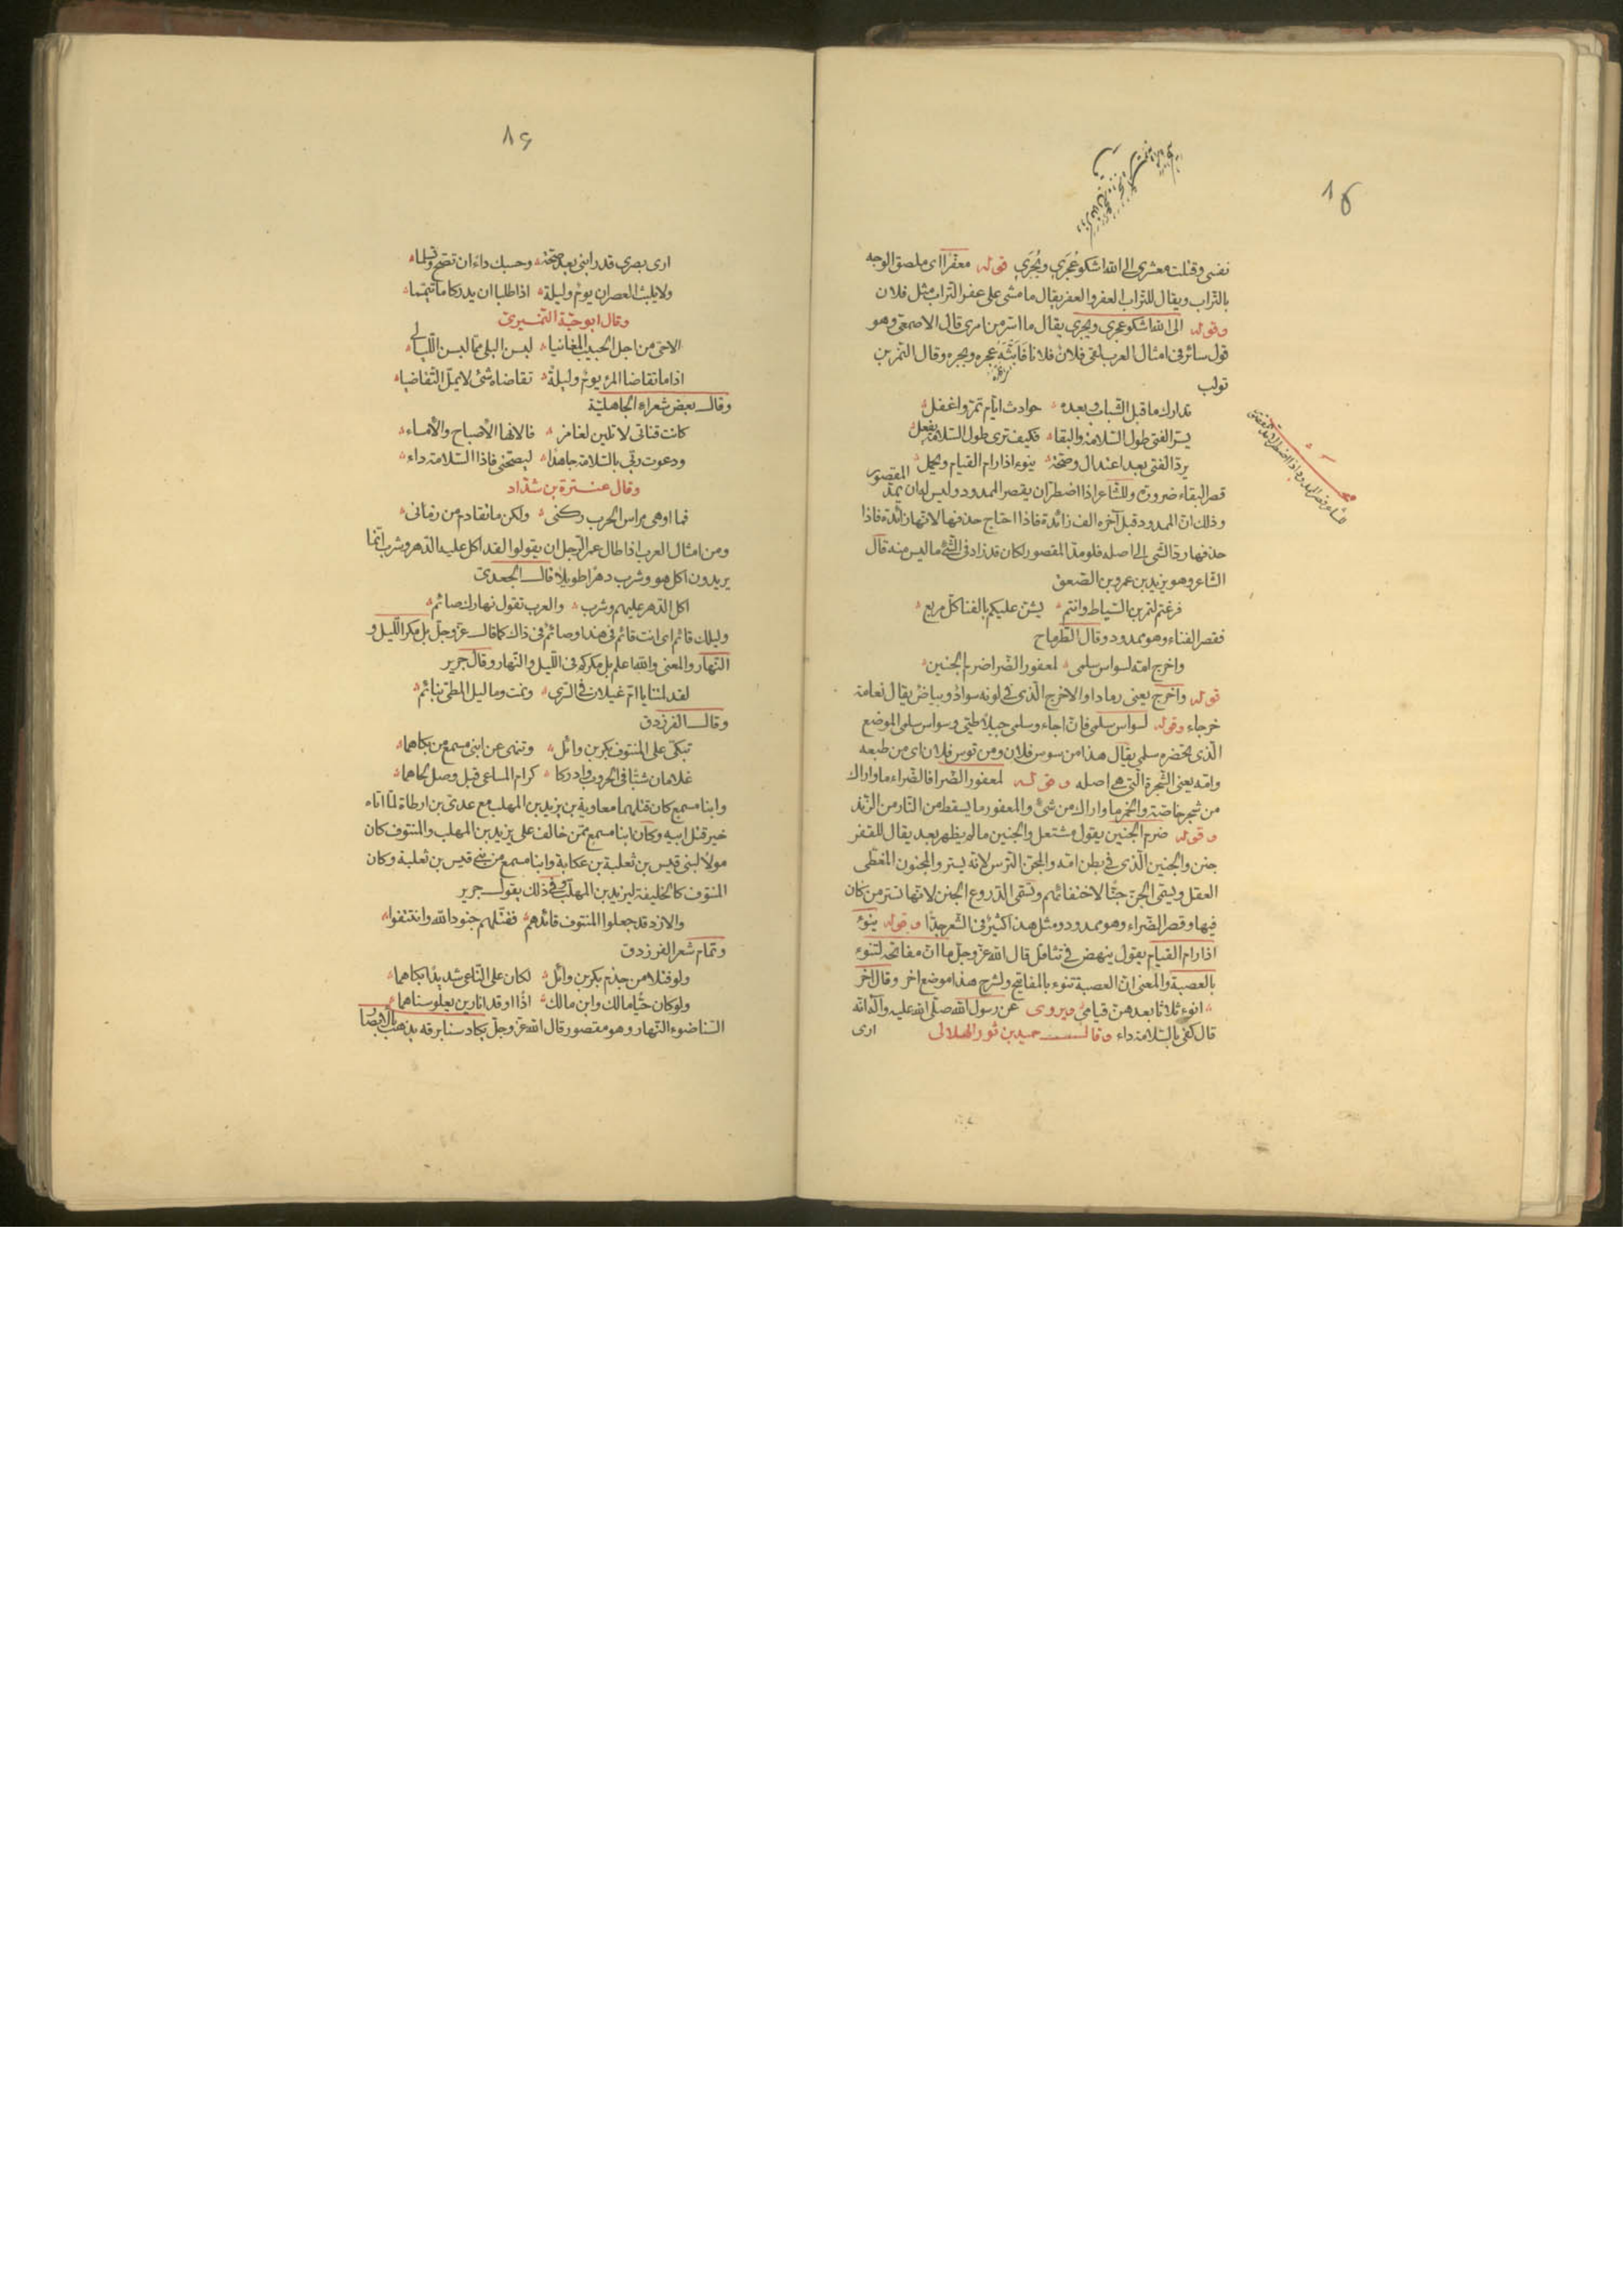 ٨٥
نفسى وقتلت معشرى الى الله اشكو عُجَرى وبُجَرى قوله معفّرا اى ملصق الوجه
بالتراب ويقال للتراب العفر والعفر يقال ما مشى على عفر التراب مثل فلان
وقوله الى الله اشكو عجرى وبجرى يقال ما اسرّ من امرى قال الاصمعى وهو
قول سائر فى امثال العرب لقى فلان فلانا فَاَبَثَّهَ عجره وبجره وقال النمر بن
تولب
تدارك ما قبل الشباب وبعده حوادث ايام تمرّ واغفل
يسرّ الفتى طول السّلامة والبقا فكيف ترى طول السّلامة يفعل
يردّ الفتى بعد اعتدال وصحّة ينوء اذا رام القيام ويحمل
قصر البقاء ضرورة وللشاعر اذا اضطرّ ان يقصر الممدود وليس له ان يمدّ المقصور
وذلك انّ الممدود قبل آخره الف زائدة فاذا احتاج حذفها لانها زائدة فاذا
حذفها ردّ الشى الى اصله فلو مدّ المقصور لكان قد زاد فى الشئ ما ليس منه قال
الشاعر وهو يزيد بن عمرو بن الصّعق
فرغتم لتمرين السّياط وانتم يشنّ عليكم بالفنا كلّ مربع
فقصر الفناء وهو ممدود وقال الطّرماح
واخرج امّه لسواس سلمى لمعفور الضّرا ضرم الجنين
قوله واخرج يعنى رمادا والاخرج الّذى فى لونه سوادٌ وبياضٌ يقال نعامة
خرجاء وقوله لسواس سلمى فانّ اجاء وسلمى جبلا طيّئ وسواس سلمى الموضع
الّذى بحضره سلمى يقال هذا من سوس فلان ومن توس فلان اى من طبعه
وامّه يعنى الشّجرة الّتى هى اصله وقوله لمعفور الضّرا فالضّراء ما واراك
من شجر خاصّة والخمر ما واراك من شئٍ والمعفور ما يسقط من النّار من الزّند
وقوله ضرم الجنين يقول مشتعل والجنين ما لم يظهر بعد يقال للقبر
جنن والجنين الّذى فى بطن امّه والمجنّ الترس لانه يستر والمجنون المغطّى
العقل ويسمّى الجنّ جنّا لاختفائهم وتسمّى الدّروع الجنن لانّها تستر من كان
فيها وقصر الضّراء وهو ممدود ومثل هذا كثيرٌ فى الشعر جدّا وقوله ينوءُ
اذا رام القيام يقول ينهض فى تثاقل قال الله عزّ وجلّ ما انّ مفاتحه لتنوء
بالعصبة والمعنى انّ العصبة تنوء بالمفاتيح ولشرح هذا موضع اخر وقال اخر
انوء ثلاثا بعدهنّ قيامى ويروى عن رسول الله صلّى الله عليه وآله انّه
قال كفى بالسّلامة داء وقال حميد بن ثور الهلالى
ارى
٨٦
ارى بصرى قد رابنى بعد صحّة وحسبك داءً ان تصحّ وتسلما
ولا يلبث العصران يومٌ وليلة اذا طلبا ان يدركا ما تيمّما
وقال ابو حيّة النّميرىّ
الا حىّ من اجل الحبيب المغانيا لبسن البلى ممّا لبسن اللّياليا
اذا ما تقاضا المرء يومٌ وليلةٌ تقاضاه شئ لا يملّ التّقاضيا
وقال بعض شعراء الجاهليّة
كانت قناتى لا تلين لغامز فالانها الاصباح والامساء
ودعوت ربّى بالسّلامة جاهدا ليصحّنى فاذا السّلامة داء
وقال عنترة بن شدّاد
فما اوهى مراس الحرب ركنى ولكن ما تقادم من زمانى
ومن امثال العرب اذا طال عمر الرّجل ان يقولوا لقد اكل عليه الدّهر وشرب انّما
يريدون اكل هو وشرب دهرا طويلا قال الجعدىّ
اكل الدّهر عليهم وشرب والعرب تقول نهارك صائم
وليلك قائم اى انت قائم فى هذا وصائم فى ذاك كما قال عزّ وجلّ بل مكر اللّيل و
النّهار والمعنى والله اعلم بل مكركم فى اللّيل والنّهار وقال جرير
لقد لمتنا يا امّ غيلان فى السّرى ونمت وما ليل المطىّ بنائم
وقال الفرزدق
تبكى على المنتوف بكر بن وائل وتنهى عن ابنى مسمع من بكاهما
غلامان شبّا فى الحروب وادركا كرام المساعى قبل وصل لحاهما
وابنا مسمع كان قتلهما معاوية بن يزيد بن المهلب مع عدىّ بن ارطاة لمّا اتاه
خبر قتل ابيه وكان ابنا مسمع ممّن خالف على يزيد بن المهلب والمنتوف كان
مولا لبنى قيس بن ثعلبة بن عكابة وابنا مسمع من بنى قيس بن ثعلبة وكان
المنتوف كالخليفة ليزيد بن المهلّب وفى ذلك يقول جرير
والازد قد جعلوا المنتوف قائدهم فقتّلهم جنود الله وانتتفوا
وتمام شعر الفرزدق
ولو قتلا من جذم بكر بن وائل لكان على النّاعى شديدا بكاهما
ولو كان حيّا مالك وابن مالك اذًا اوقدا نارين يعلو سناهما
السّنا ضوء النّهار وهو مقصور قال الله عزّ وجلّ يكاد سنا برقه يذهب بالابصار